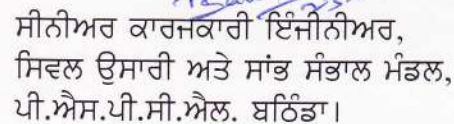 ਸੀਨੀਅਰ ਕਾਰਜਕਾਰੀ ਇੰਜੀਨੀਅਰ,
ਸਿਵਲ ਉਸਾਰੀ ਅਤੇ ਸਾਂਭ ਸੰਭਾਲ ਮੰਡਲ,
ਪੀ.ਐਸ.ਪੀ.ਸੀ.ਐਲ. ਬਠਿੰਡਾ।